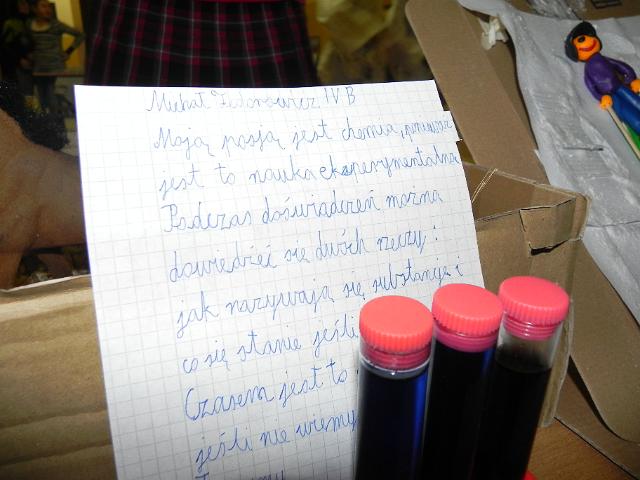 Michał Fedorowicz IV B
Moją pasją jest chemia, ponieważ
jest to nauka eksperymentalna
Podczas doświadczeń można
dowiedzieć się dwóch rzeczy:
jak nazywają się substancje i
co się stanie jeśli
Czasem jest to
jeśli nie wiemy